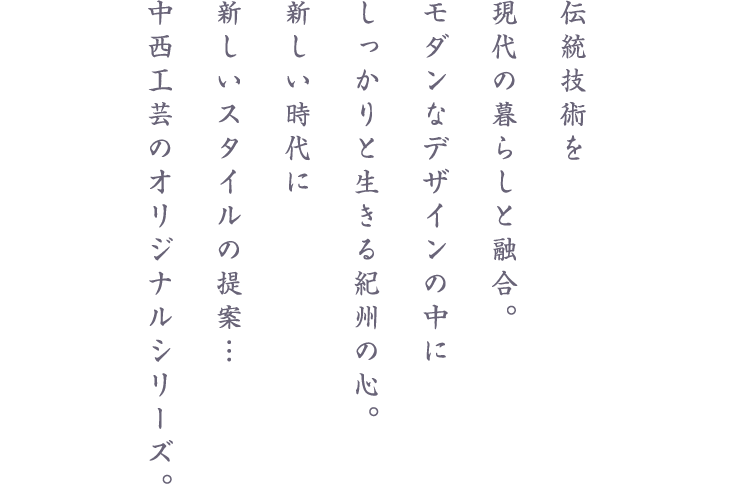 伝統技術を
現代の暮らしと融合。
モダンなデザインの中に
しっかりと生きる紀州の心。
新しい時代に
新しいスタイルの提案…
中西工芸のオリジナルシリーズ。